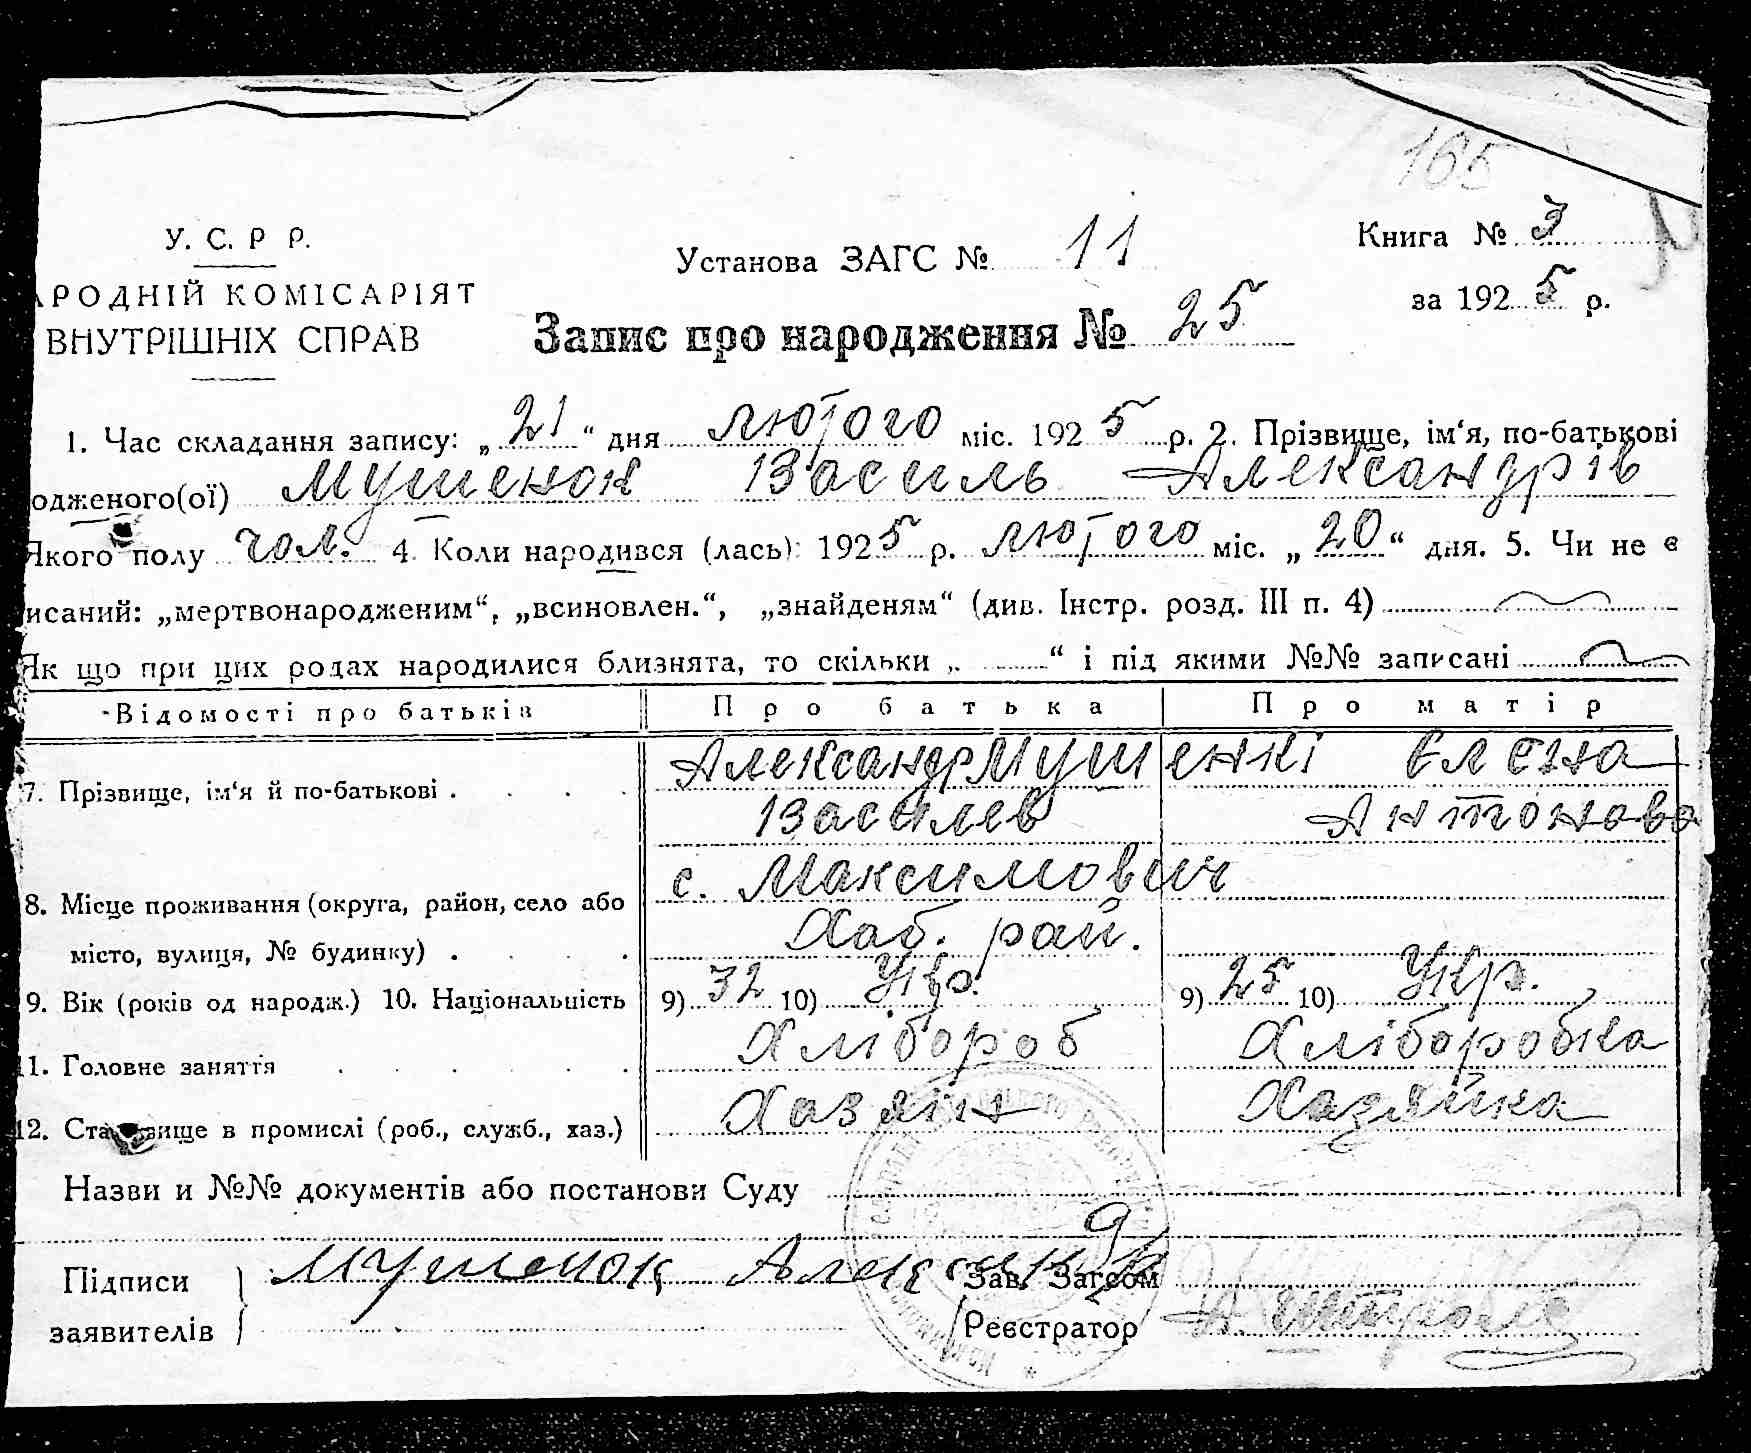 165
У. С. Р Р.
АРОДНІЙ КОМІСАРІЯТ
ВНУТРІШНІХ СПРАВ
Установа ЗАГС № 11
Книга № 3
за 1925 р.
Запис про народження № 25
1. Час складання запису: „21“ дня лютого міс. 1925 р. 2. Прізвище, ім‘я, по-батькові
одженого(ої) Мушенок Василь Александрів
Якого полу чол. 4. Коли народився (лась): 1925 р. лютого міс. „20“ дня. 5. Чи не є
исаний: „мертвонародженим“, „всиновлен.“, „знайденям“ (див. Інстр. розд. III п. 4)
Як що при цих родах народилися близнята, то скільки „ “ і під якими №№ записані
Відомості про батьків Про батька Про матір
7. Прізвище, ім‘я й по-батькові . . . . Александр Мушенкі Елена
Василев Антонова
с. Максимович
8. Місце проживання (округа, район, село або
місто, вулиця, № будинку) . . . . Хаб. рай.
9. Вік (років од народж.) 10. Національність 9) 32 10) Укр. 9) 25 10) Укр.
11. Головне заняття . . . . . Хлібороб Хліборобка
12. Становище в промислі (роб., служб., хаз.) Хазяін Хазяйка
Назви и №№ документів або постанови Суду
Підписи Мушенок Александр Зав. Загсом
заявителів Реєстратор